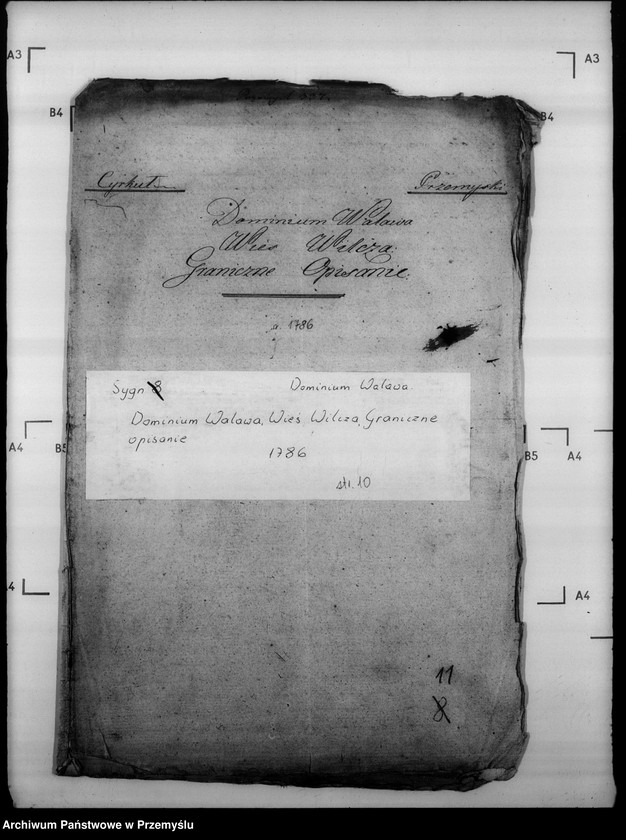 A3
A3
B4
B4
Cyrkuł
Przemyski
Dominium Walawa
Wieś Wilcza
Graniczne Opisanie.
a. 1786
Sygn 8
Dominium Walawa
Dominium Walawa, Wieś Wilcza, Graniczne
opisanie
1786
str. 10
A4
B5
B5
A4
A4
A4
11
8
Archiwum Państwowe w Przemyślu